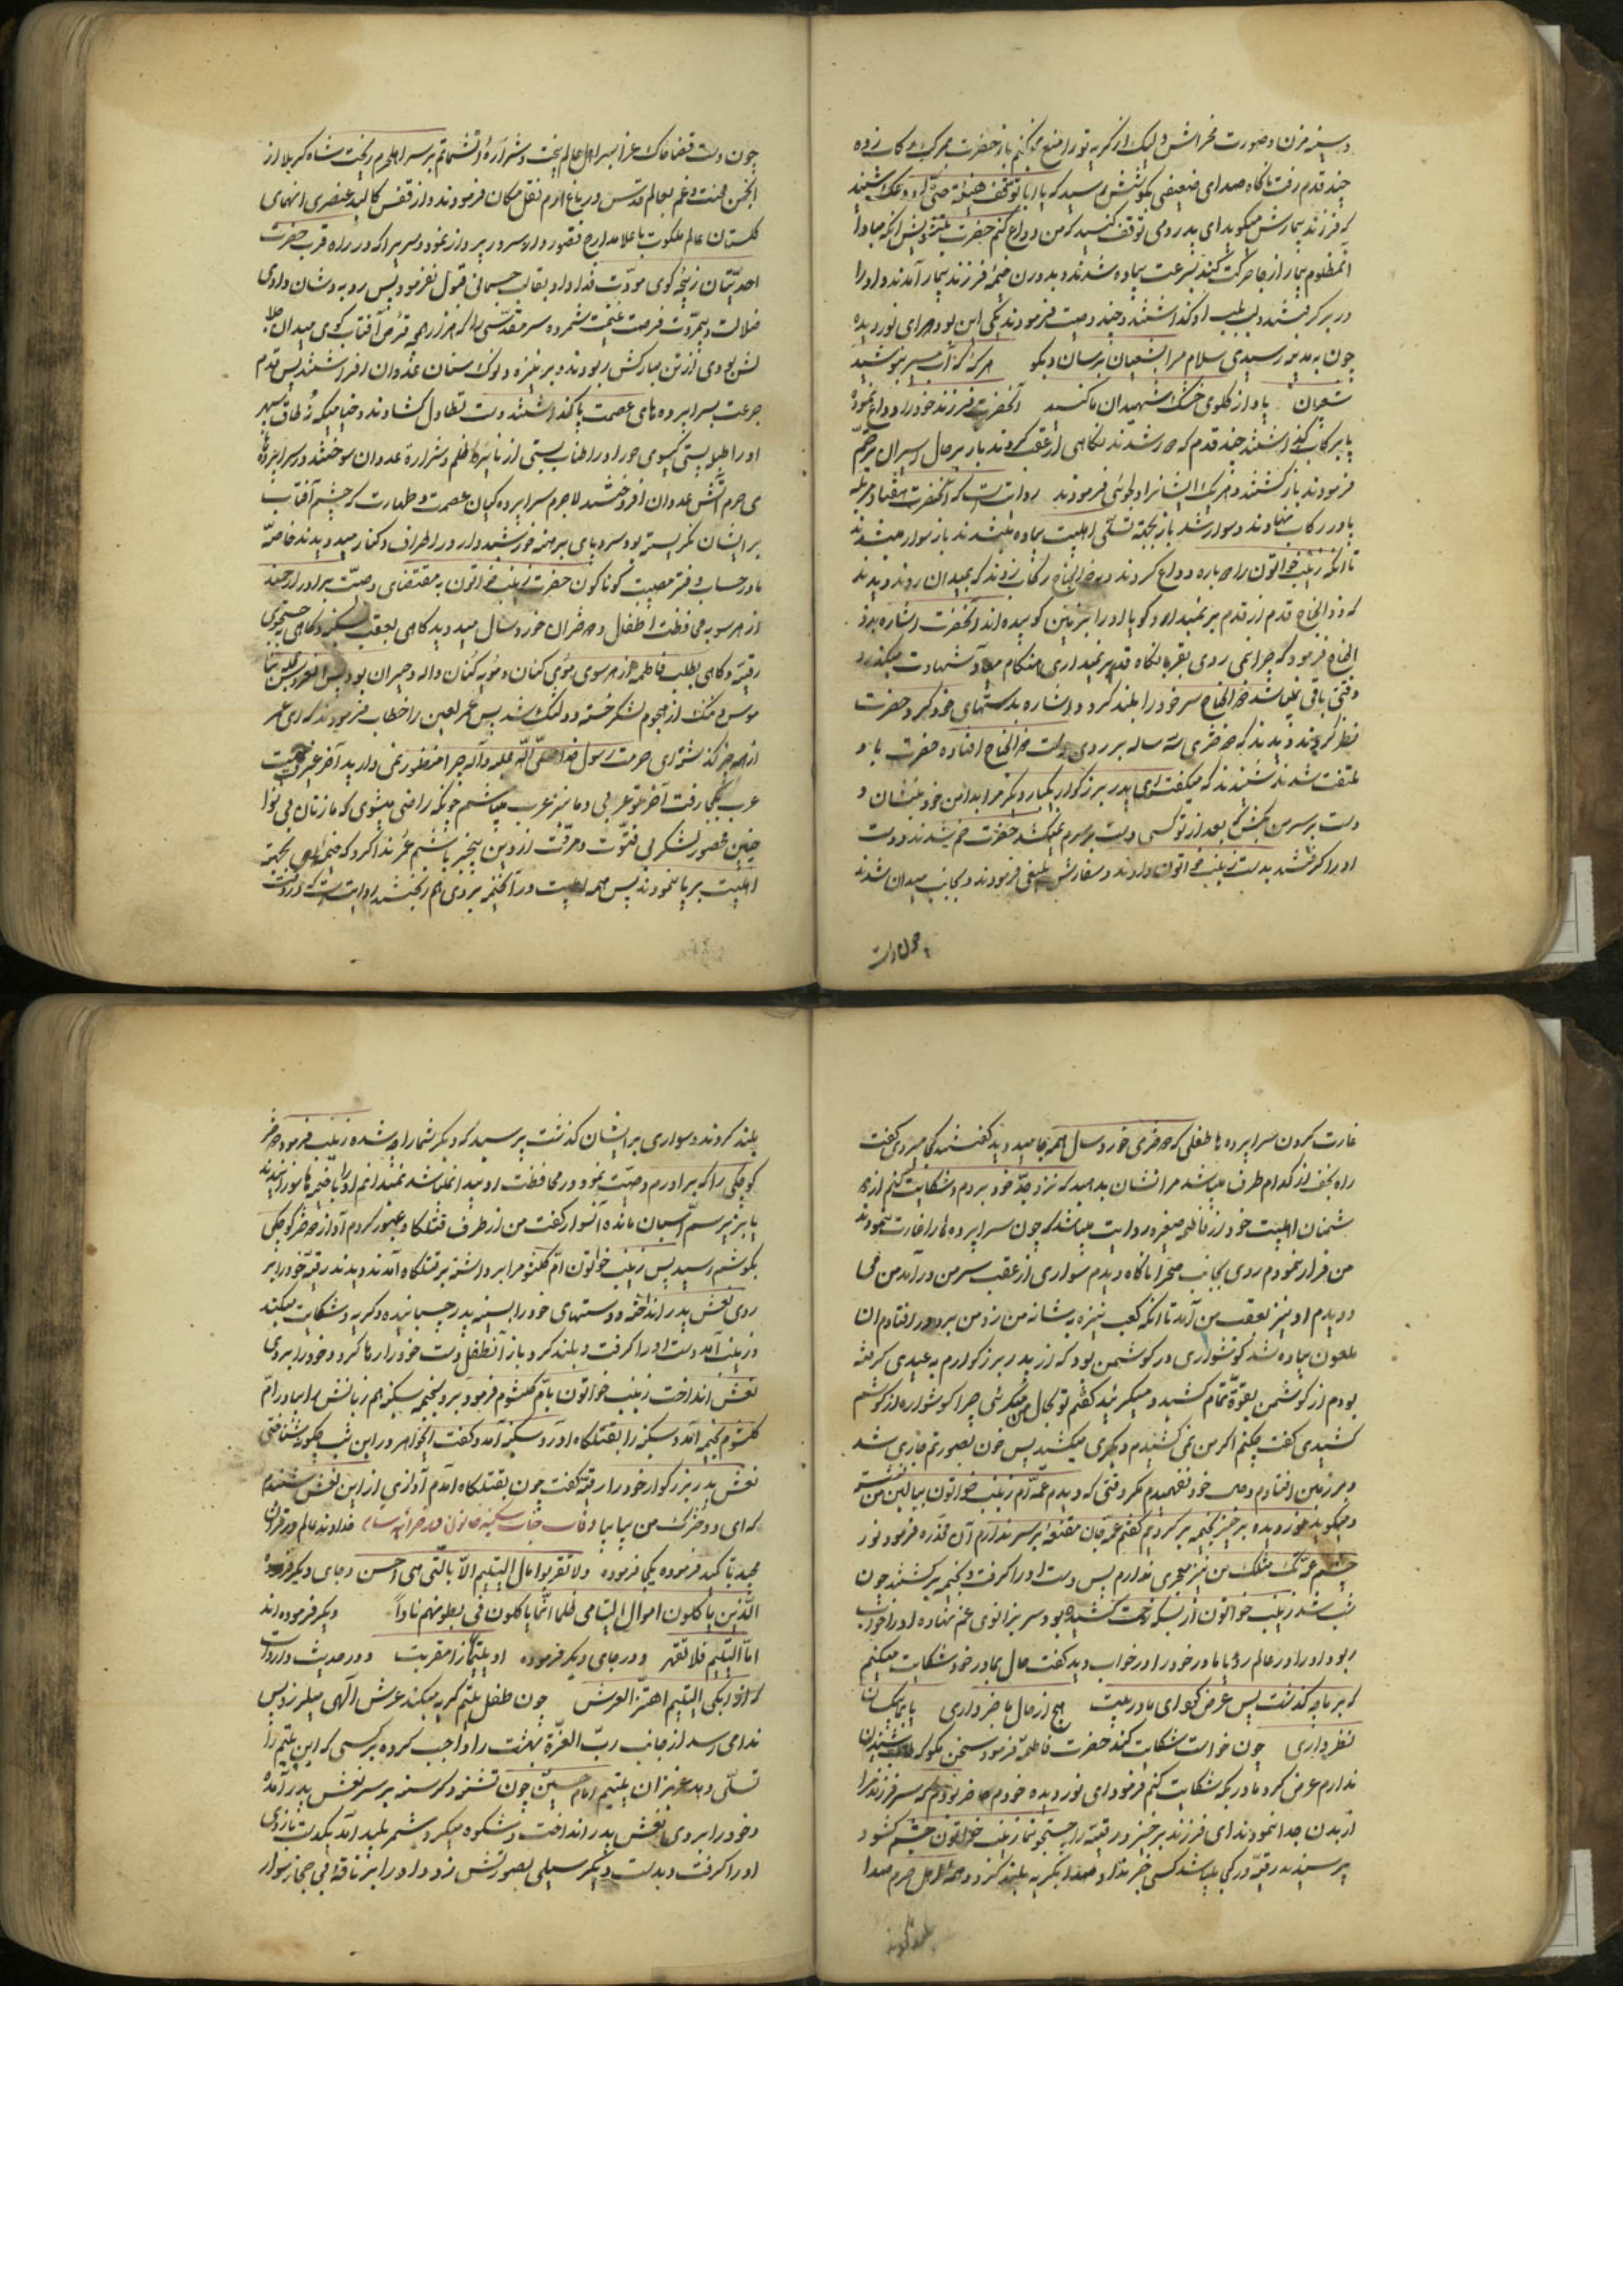 و سینه مزن و صورت مخراش و لیک از گریه تو را منع نمیکنم باز حضرت مرکب رکاب زده
چند قدم رفت ناگاه صدای ضعیفی بگوشش رسید که یا ابا توقف
که فرزند بیمارش میگوید ای پدر دمی توقف کنید که من وداع کنم حضرت پیش از آنکه مبادا
آنمظلوم بیمار از جا حرکت کند بسرعت پیاده شدند و بدرون خیمه فرزند بیمار آمدند و او را
در بر گرفتند و لب بلب او گذاشتند و چند وصیت فرمودند یکی این بود که ای نور دیده
چون بمدینه رسیدی سلام مرا بشیعیان برسان و بگو هر گه که آب سرد بنوشید
شیعیان یاد از گلوی خشک شهیدان ما کنید آنحضرت فرزند خود را وداع نموده
پا برکاب گذاشتند چند قدم که دور شدند نگاهی از عقب کردند باز بر حال اسیران ترحم
فرمودند باز گشتند و هر یک ایشانرا دلجوئی فرمودند روایتست که آنحضرت هفتاد مرتبه
پا در رکاب نهادند و سوار شدند باز بجهة تسلی اهلبیت پیاده میشدند باز سوار میشدند
تا آنکه زینب خواتون را دوباره وداع کردند و ذوالجناح رکاب زدند که بمیدان روند دیدند
که ذوالجناح قدم از قدم بر نمیدارد و گویا او را بزمین کوبیده اند آنحضرت اشاره بذو
الجناح فرمود که چرا نمی روی بقربانگاه قدم بر نمیداری هنگام شهادت میگذرد
وقتی باقی نماند ذوالجناح سر خود را بلند کرد و اشاره بدستهای خود کرد حضرت
نظر کردند دیدند که دختری سه ساله بر روی دست ذوالجناح افتاده حضرت باو
ملتفت شدند شنیدند که میگفت ای پدر بزرگوار یکبار دیگر مرا بدامن خود بنشان و
دست بر سر من بکش که بعد از تو کسی دست بر سرم نمیکشد حضرت خم شدند و دست
او را گرفتند بدست زینب خواتون دادند و سفارش بلیغی فرمودند و بجانب میدان شدند
چون دست
چون دست قضا خاک عزا بسر اهل عالم بیخت و شراره آتش ماتم بر سر اهل حرم ریخت شاه کربلا از
انجمن محنت و غم بعالم قدس و باغ ارم نقل مکان فرمودند و از قفس کالبد عنصری انهمای
گلستان عالم ملکوت با علا مدارج قصور دار السرور پرواز نمود و سریرا که در راه قرب حضرت
ضلالت و بیمروّت فرصت غنیمت شمرده سر مقدسی را که هزار همچه قرص آفتاب گوی میدان جلا
لتش بودی از تن مبارکش ربودند و بر نیزه و نوک سنان عدوان افراشتند پس قدم
جرعت بسراپرده های عصمت پا گذاشتند دست تطاول گشادند و خیامیکه نُه طاق سپهر
او را طبق بستی گیسوی حور او را طناب بستی از نایره ظلم و شراره عدوان سوختند در سراپرده
ی حرم آتش عدوان افروختند لاجرم سراپرده گیان عصمت و طهارت که چشم آفتاب
بر ایشان نگریسته بود سر و پای برهنه خورشید وار در اطراف و کنار میدویدند خاصه
مادر حساب دفتر مصیبت گوناگون حضرت زینب خواتون به مقتضای وصیّت برادر ارجمند
از هر سو به محافظت اطفال و دختران خورد سال میدوید گاهی بعقب سکینه و گاهی به جستجوی
رقیّه و گاهی بطلب فاطمه از هر سوی مُوی کنان و مُویه کُنان واله و حیران بود
موس و تنگ از هجوم لشکر خسته و دلتنگ شد پس عمر لعین را خطاب فرمودند که ای عمر
از هر چه گذشتی ای حرمت رسول خدا صلّی اللّه علیه و آله چرا منظور نمی دارید آخر غیرت
عرب بکجا رفت آخر تو عربی و ما نیز عرب میباشیم چگونه راضی میشوی که ما زنان بی نوا
چنین محصور لشکر بی فتوّت و مروّت از دین بیخبر باشیم عمر ندا کرد که خیمه بجهة
اهلبیت بر پا نمودند پس همه اهلبیت در آنخیمه بر روی هم ریختند روایتست که در وقت
غارت کردن سراپرده ها طفلی که دختری خورد سال همه جا میدوید گفتند کجا میروی گفت
راه نجف از کدام طرف میباشد مرا نشان بدهید که نزد جدّ خود بروم و شکایت کنم از د
شمنان اهلبیت خود از فاطمه صغری روایت میباشد که چون سراپرده ها را غارت نمودند
من فرار نمودم روی بجانب صحرا ناگاه دیدم سواری از عقب سر من در آمد من می
دویدم او نیز بعقب من آمد تا آنکه کعب نیزه به شانه من زد من برو در افتادم آن
ملعون پیاده شد گوشواری در گوشمن بود که از پدر بزرگوارم به عیدی گرفته
بودم از گوشمن بقوّة تمام کشید و میگریید گفتم تو بحال من میگریی چرا گوشواره از گوشم
کشیدی گفت چکنم اگر من نمی کشیدم دیگری میکشید پس خون بصورتم جاری شد
و بر زمین افتادم و حال خود نفهمیدم مگر وقتی که دیدم عمّه ام زینب خواتون ببالین من نشسته
و میگوید نور دیده بر خیز بخیمه بر گردیم گفتم عمّه جان مقنعه بر سر ندارم آن مخدّره فرمود نور
چشم عمّتک مثلک من نیز معجری ندارم پس دست او را گرفت و بخیمه برگشتند چون
شب شد زینب خواتون از بسکه زحمت کشیده بود سر بزانوی غم نهاده او را خواب
ربود او را در عالم رؤیا مادر خود را در خواب دید گفت حال بمادر خود شکایت میکنم
که بر ما چه گذشت پس عرض کرد ای مادر هیچ از حال ما خبر داری با بیکسان
نظر داری چون خواست شکایت کند حضرت فاطمه فرمود سخن مگو که طاقت شنیدن
ندارم عرض کرد مادر بکه شکایت کنم فرمود ای نور دیده خودم حاضر بودم که سر فرزند مرا
از بدن جدا نمودند ای فرزند بر خیز و رقیّه را جستجو نما زینب خواتون چشم گشود
پرسیدند رقیّه در کجا میباشد کسی خبر نداد صدا بگریه بلند کرد و همه اهل حرم صدا
بلند کردند
بلند کردند سواری بر ایشان گذشت پرسید که دیگر شما را چه شده زینب فرمود دختر
کوچکی را که برادرم وصیّت نمود در محافظت او پیدا نمیباشد نمیدانم او را با خیمه ها سوزانیدند
یا بزیر سمّ اسبان مانده آنسوار گفت من از طرف قتلگاه عبور کردم آواز دختر کوچکی
بگوشم رسید پس زینب خواتون امّ کلثوم را برداشته بر قتلگاه آمدند دیدند رقیّه خود را بر
روی نعش پدر انداخته و دستهای خود را بسینه پدر چسبانیده و گریه و شکایت میکند
زینب آمد دست او را گرفت و بلند کرد باز آنطفل دست خود را رها کرد و خود را بروی
نعش انداخت زینب خواتون بامّ کلثوم فرمود برو بخیمه سکینه هم زبانش را بیاور امّ
کلثوم بخیمه آمد و سکینه را بقتلگاه آورد و سکینه آمد و گفت ایخواهر در این شب چگونه شناختی
نعش پدر بزرگوار خود را رقیّه گفت چون بقتلگاه آمدم آوازی از این نعش شنیدم
که ای دخترک من بیا بیا وفات جناب سکینه خاتون خداوند عالم در قرآن
مجید تأکید فرموده یکجا فرموده ولا تقربوا مال الیتیم الّا بالّتی هی احسن و جای دیگر فرموده
الّذین یاکلون اموال الیتامی ظلما انّما یاکلون فی بطونهم ناراً دیگر فرموده اند
امّا الیتیم فلا تقهر و در جای دیگر فرموده او یتیماً ذا مقربت و در حدیث وارد است
که اذا بکی الیتیم اهتزّ العرش چون طفل یتیم گریه میکند عرش الهی میلرزد پس
ندا می رسد از جانب ربّ العزّة بهشت را واجب کرده بر کسی که این یتیم را
تسلّی دهد عزیزان یتیم امام حسین چون تشنه و گرسنه بر سر نعش پدر آمده
و خود را بروی نعش پدر انداخت و شکوه میکرد شمر پلید آمد بیکدست بازوی
او را گرفت و بدست دیگر سیلی بصورتش زد و او را بر ناقه بی جهاز سوار